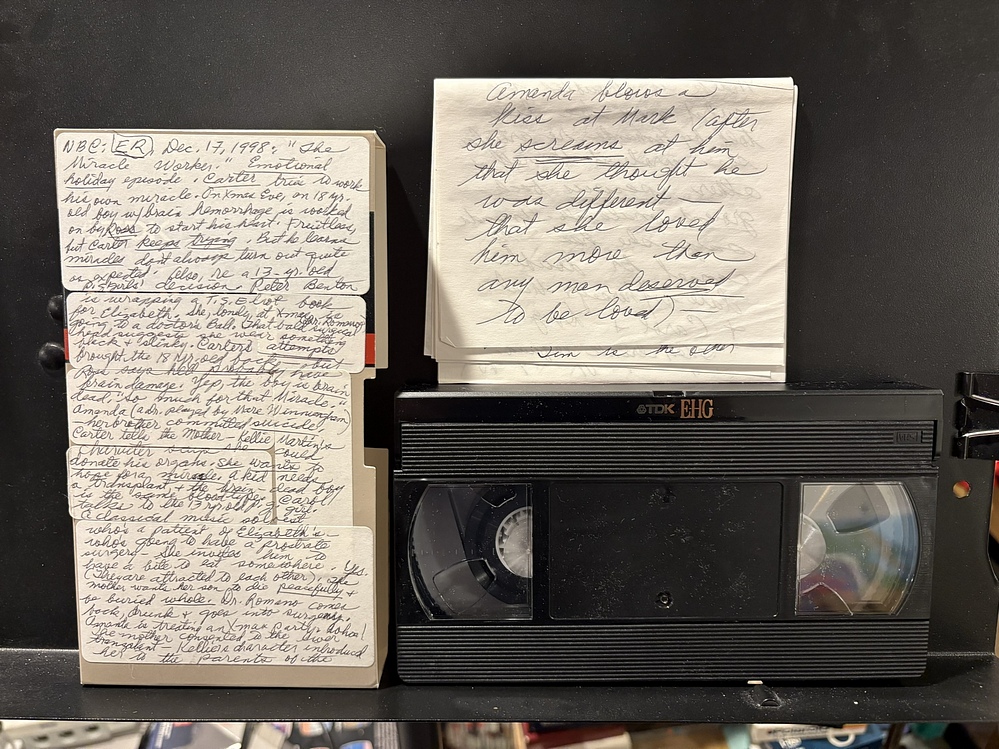 NBC: ER, Dec. 17, 1998: "The
Miracle Worker." Emotional
holiday episode. Carter tries to work
his own miracle. On Xmas Eve, an 18 yr.
old boy w/brain hemorrhage is worked
on by Ross to start his heart. Fruitless,
but Carter keeps trying. But he learns
miracles don't always turn out quite
as expected. Also, re a 13-yr. old
girls' decision. Peter Benton
is wrapping a T.S. Eliot book
for Elizabeth. She, lonely at Xmas, is
going to a doctor's Ball. That bald
Dr. Romano
head suggests she wear something
black & slinky. Carter's attempts
brought the 18 yr. old back, but
Ross says he'd probably have
brain damage. Yep, the boy is brain
dead, "so much for that miracle."
Amanda (a dr. played by Mare Winningham
– her brother committed suicide
Carter tells the Mother – Kellie Martin's
character says she could
donate his organs. She wants to
hope for a miracle. A kid needs
a transplant & the brain dead boy
is the same blood type. Carol
talks to the 13 yr old girl.
Classical music soloist
who's a patient of Elizabeth's –
who's going to have a prostrate
surgery – She invites him to
have a bite to eat somewhere. Yes.
(They are attracted to each other). The
mother wants her son to die peacefully &
be buried whole. Dr. Romano comes
back, drunk & goes into surgery.
Amanda is treating an Xmas Party.
The mother consented to the liver
transplant – Kellie's character introduced
her to the parents of the
Amanda blows a
kiss at Mark (after
she screams at him
that she thought he
was different –
that she loved
him more than
any man deserved
to be loved)
is the other
TDK EHG
VHS